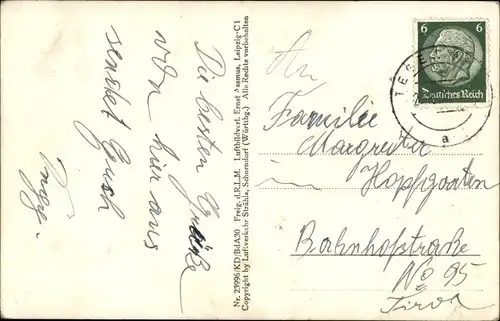 Die besten Grüße
von hier aus
sendet Euch
Inge.
Nr. 23996(KD)BdA30 Freig. d. R.L.M. Luftbildverl. Ernst Asmus, Leipzig-C1
Copyright by Luftverkehr Strähle, Schorndorf (Württbg.) Alle Rechte vorbehalten
An
Familie
Margreiter
in Hopfgarten
Bahnhofstraße
No 95
Tirol
6 6
Deutsches Reich
a